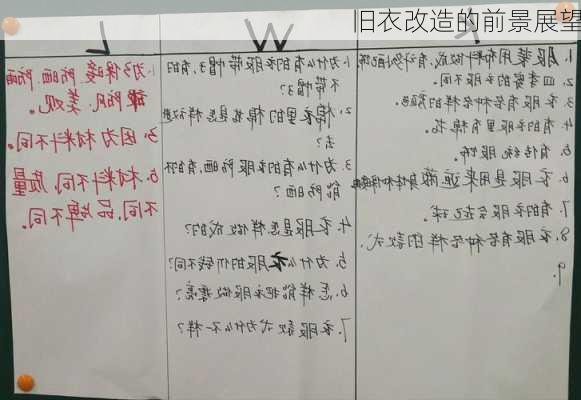 旧衣改造的前景展望
K
1.服装用布料做成,有许多配饰.
2.四季穿的衣服不同.
3.衣服有各种各样的颜色.
4.有的衣服里有棉花.
5.有传统服饰.
6.衣服是用来遮蔽身体和保暖
7.有的衣服会起球.
8.衣服有各种各样的款式.
9.
W
1.为什么有的衣服带帽子,有的
不带帽子?
2.棉衣里的棉花是怎样放进
去?
3.为什么有的衣服防晒,有的不
能防晒?
4.衣服是怎样做成的?
5.为什么衣服的价钱不同?
6.怎样能把衣服做漂亮?
7.衣服款式为什么不一样?
L
1.为了保暖、防晒、防雨
防风、美观。
3.因为材料不同。
5.材料不同,质量
不同,品牌不同。